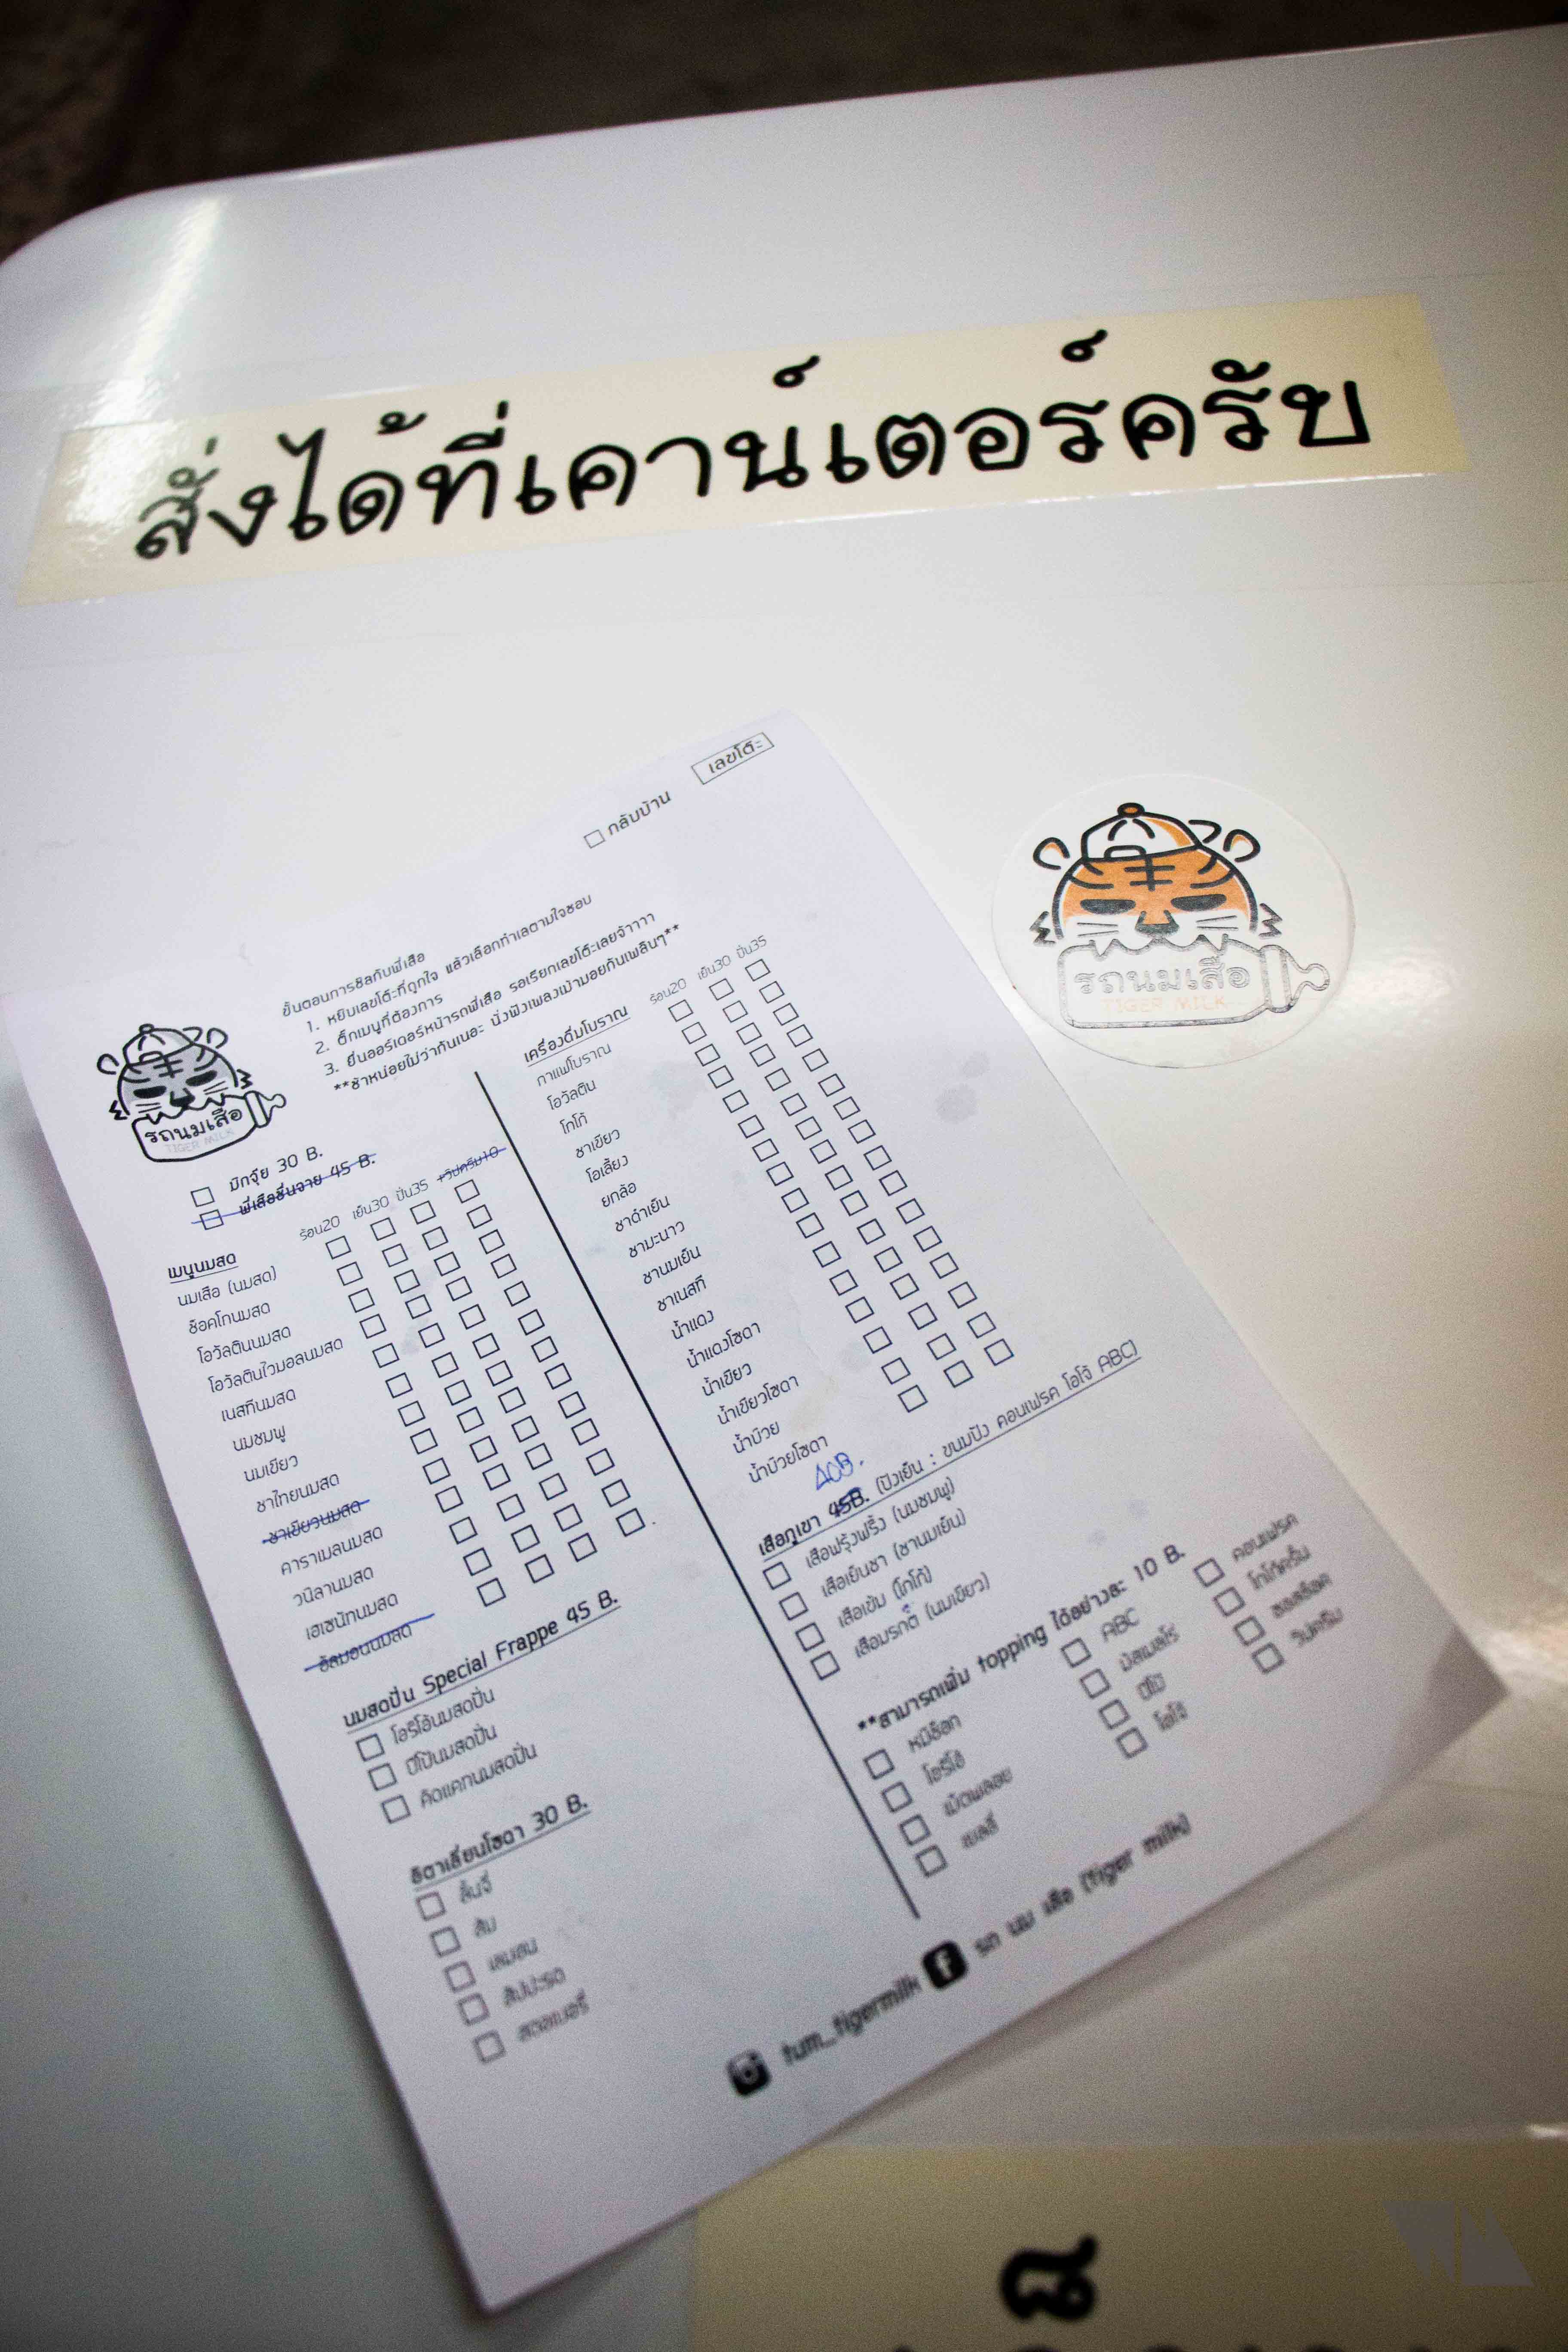 สั่งได้ที่เคาน์เตอร์ครับ
รถนมเสือ
TIGER MILK
เลขโต๊ะ
กลับบ้าน
ขั้นตอนการชิลกับพี่เสือ
1. หยิบเลขโต๊ะที่ถูกใจ แล้วเลือกทำเลตามใจชอบ
2. ติ๊กเมนูที่ต้องการ
3. ยื่นออร์เดอร์หน้ารถพี่เสือ รอเรียกเลขโต๊ะเลยจ้าาาา
**ช้าหน่อยไม่ว่ากันเนอะ นั่งฟังเพลงเม้ามอยกันเพลินๆ**
รถนมเสือ
TIGER MILK
มิกจุ๊ย 30 B.
พี่เสือชื่นจาย 45 B.
ร้อน20 เย็น30 ปั่น35 +วิปครีม10
เมนูนมสด
นมเสือ (นมสด)
ช็อคโกนมสด
โอวัลตินนมสด
โอวัลตินไวมอลนมสด
เนสทีนมสด
นมชมพู
นมเขียว
ชาไทยนมสด
ชาเขียวนมสด
คาราเมลนมสด
วนิลานมสด
เฮเซนัทนมสด
อัลมอนนมสด
นมสดปั่น Special Frappe 45 B.
โอริโอ้นมสดปั่น
ปีโป้นมสดปั่น
คิดแคทนมสดปั่น
อิตาเลี่ยนโซดา 30 B.
ลิ้นจี่
ส้ม
เลมอน
สัปปะรด
สตอเบอรี่
ร้อน20 เย็น30 ปั่น35
เครื่องดื่มโบราณ
กาแฟโบราณ
โอวัลติน
โกโก้
ชาเขียว
โอเลี้ยง
ยกล้อ
ชาดำเย็น
ชามะนาว
ชานมเย็น
ชาเนสที
น้ำแดง
น้ำแดงโซดา
น้ำเขียว
น้ำเขียวโซดา
น้ำบ๊วย
น้ำบ๊วยโซดา
40B.
เสือภูเขา 45B. (ปังเย็น : ขนมปัง คอนเฟรค โอโจ้ ABC)
เสือฟรุ้งฟริ้ง (นมชมพู)
เสือเย็นชา (ชานมเย็น)
เสือเข้ม (โกโก้)
เสือมรกต (นมเขียว)
**สามารถเพิ่ม topping ได้อย่างละ 10 B.
หมีช็อก
โอริโอ้
เม็ดพลอย
เยลลี่
ABC
มัสเมลโร่
ปีโป้
โอโจ้
คอนเฟรค
โกโก้ครั้น
ซอสช็อค
วิปครีม
tum_tigermilk
รถ นม เสือ (tiger milk)